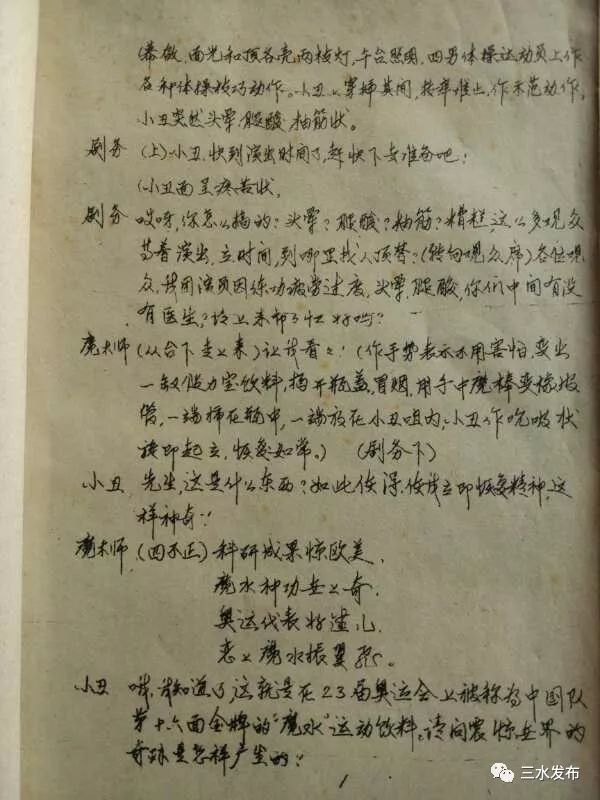 (幕启,面光和顶各亮两枝灯,半台照明,四男体操运动员上作
各种体操技巧动作。小丑上穿插其间,接牵难止,作示范动作,
小丑突然头晕、腿酸、抽筋状。
剧务 (上)小丑,快到演出时间了,赶快下去准备吧!
(小丑面呈疼苦状,
剧务 哎呀,你怎么搞的?头晕?腿酸?抽筋?糟糕,这么多观众
等着演出,立时间,到哪里找人顶替?(转向观众席)各位观
众,我用演员因练功疲劳过度,头晕,腿酸,你们中间有没
有医生?请上来帮个忙好吗?
魔大师 (从台下走上来)让我看看!(作手势表示不用害怕,变出
一支健力宝饮料,揭开瓶盖,冒烟,用手中魔棒变条吸
管,一端插在瓶中,一端放在小丑咀内,小丑作吮吸状
读即起立,恢复如常。) (剧务下)
小丑 先生,这是什么东西?如此使得,使我立即恢复精神,这
样神奇!
魔大师 (四不正)科研成果惊欧美,
魔水神功世上奇.
奥运代表好健儿
恋上魔水振翼飞。
小丑 哦,我知道了,这就是在23届奥运会上被称为中国队
第十六面金牌的"魔水"运动饮料,请问震惊世界的
奇迹是怎样产生的?
1
三水发布